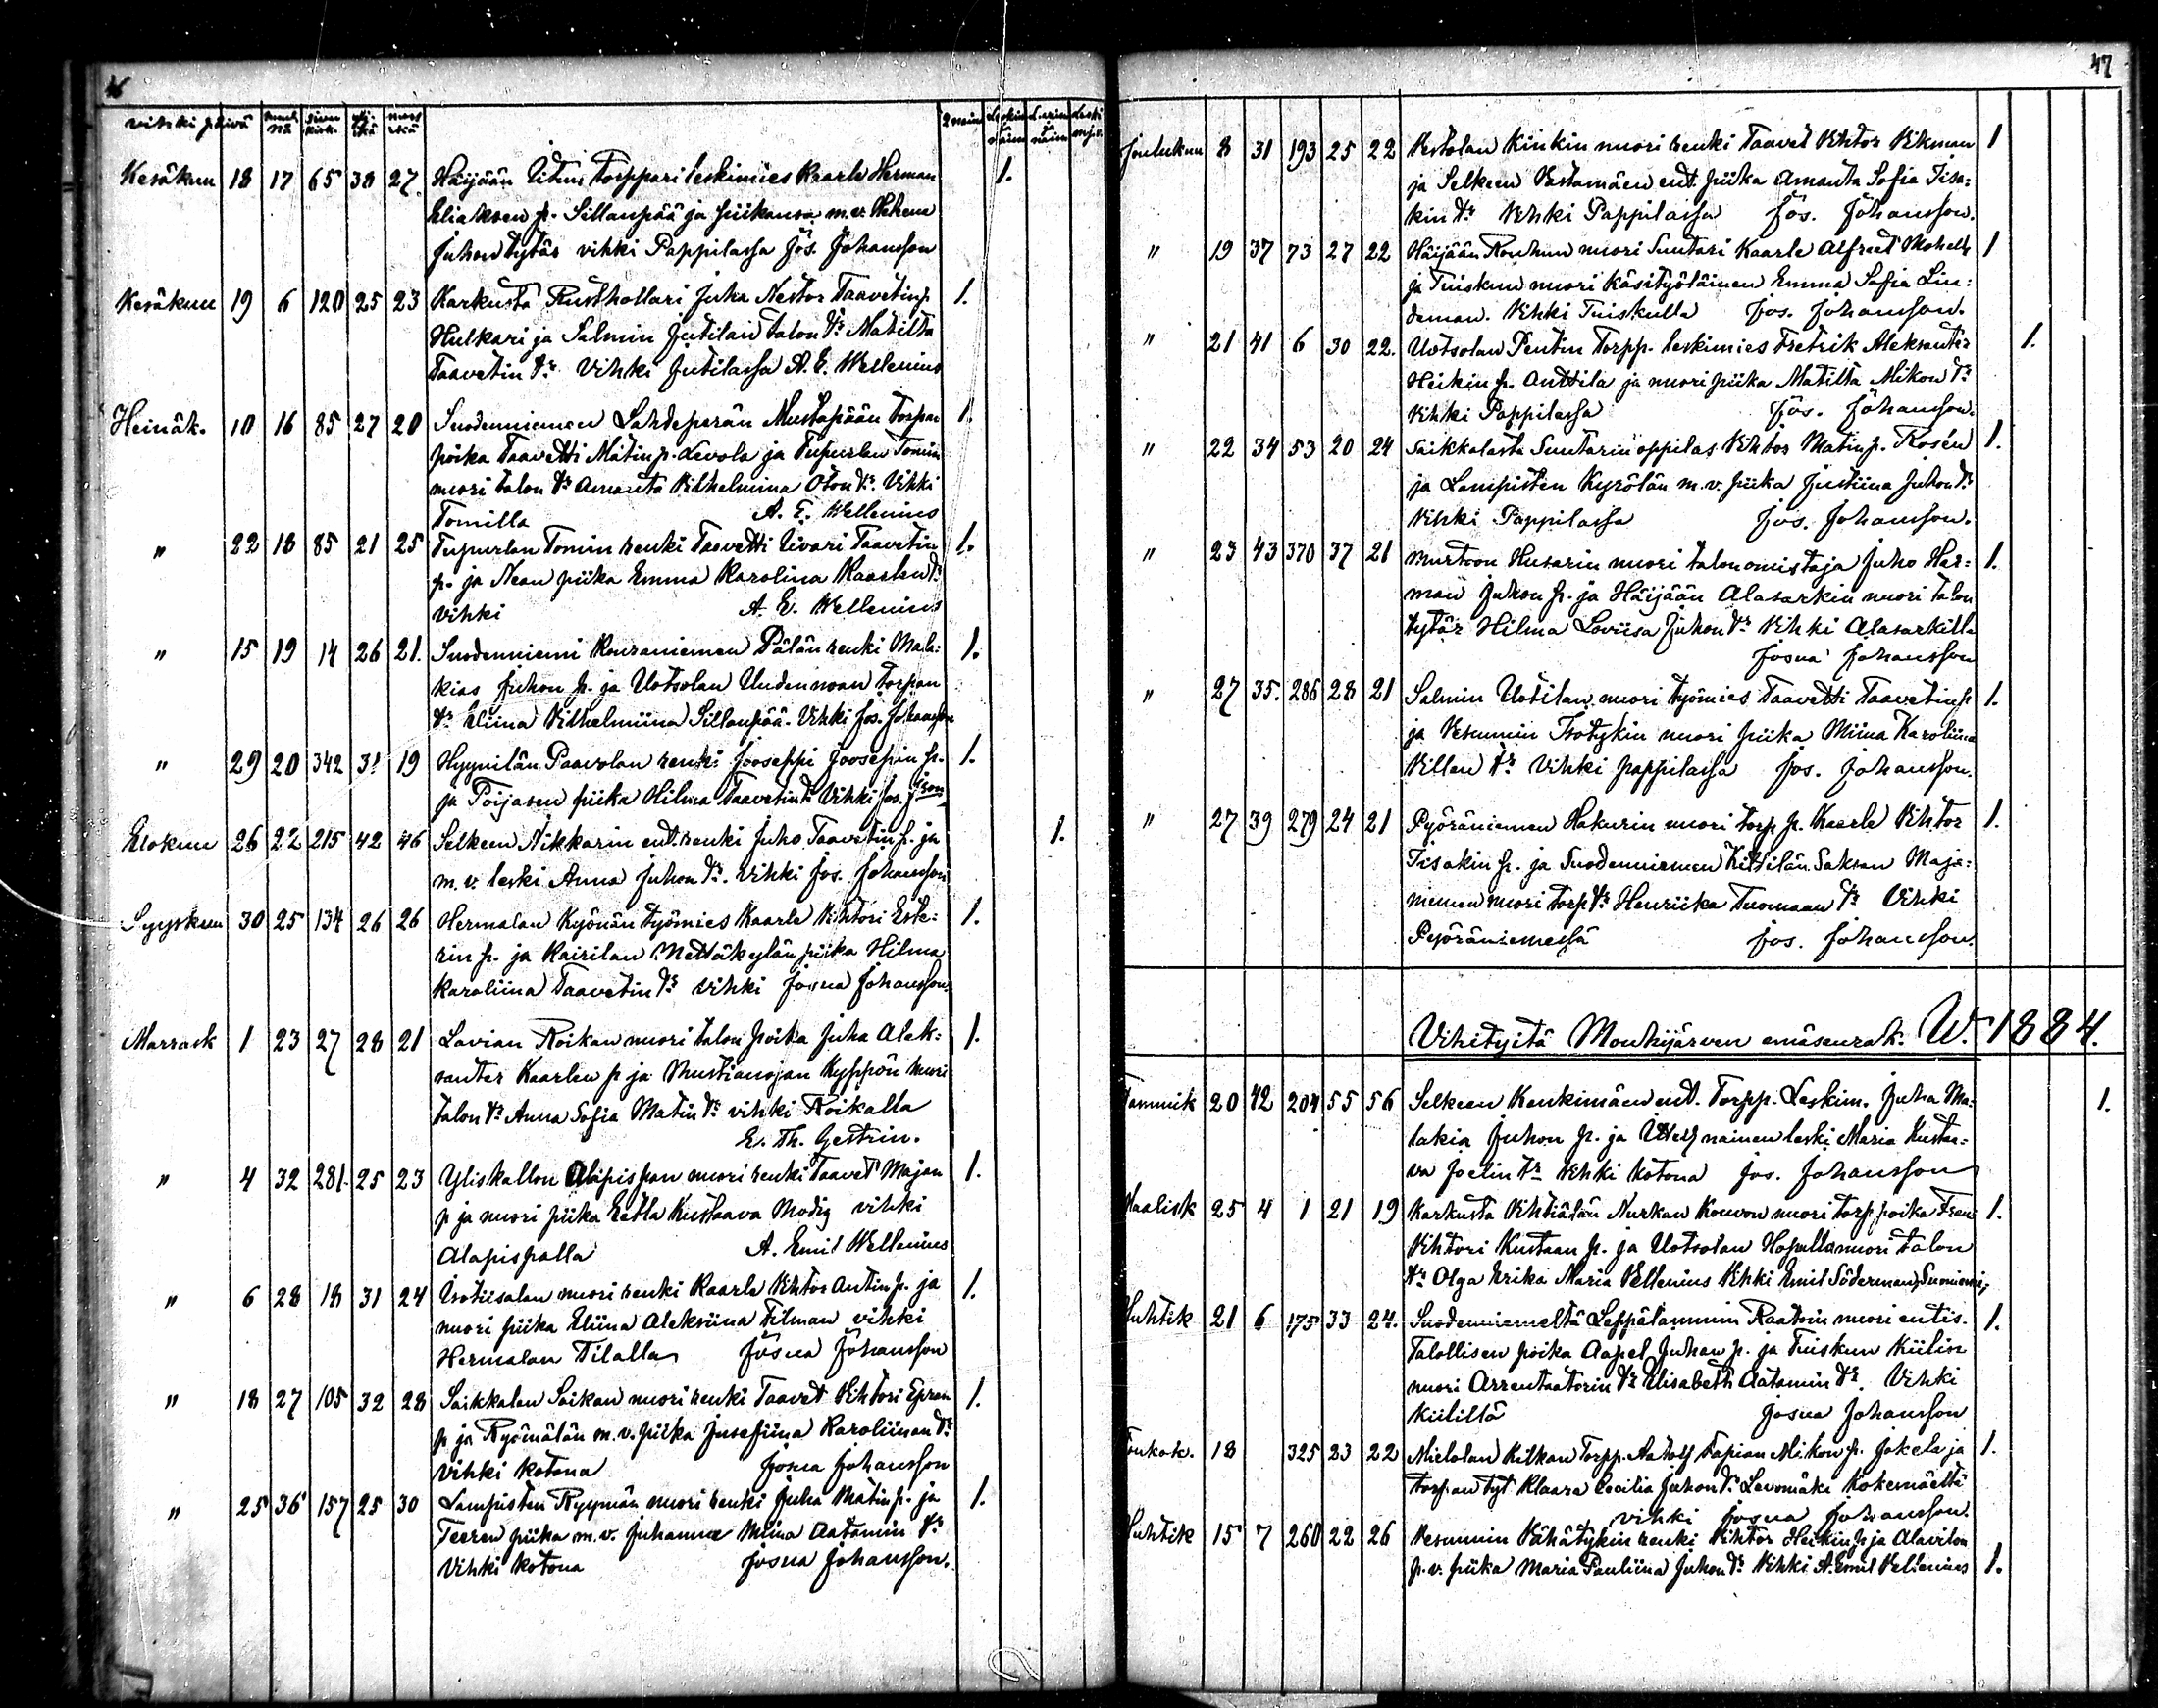 46
vihki päivä
Kesäkuu 18 17 65 38 27. Häijään Torppari leskimies Kaarle Herman 1.
Eliaksen p. Sillanpää ja piikansa m.v. Helena
Juhon tytär vihki Pappilassa Jos. Johansson
Kesäkuu 19 6 120 25 23 Karkusta Rusthollari Juha Nestor Taavetinp. 1.
Hulkari ja Salmin Jutilain talon tr. Matilta
Taavetin tr. Vihki Jutilassa A. E. Wellenius
Heinäk. 10 16 85 27 20 Suodenniemen Lahdeperän Mustapään Torpan 1.
poika Taavetti Matinp. Levola ja Tupurlan Tomin
nuori talon tr. Amanta Vilhelmina Oton tr. Vihki
Tomilla A. E. Wellenius
" 22 18 85 21 25 Tupurlan Tomin renki Taavetti Iivari Taavetin 1.
p. ja Nean piika Emma Karolina Kaarlen tr.
vihki A. E. Wellenius
" 15 19 14 26 21. Suodenniemi Kouraniemen Pälän renki Mala= 1.
kias Juhon p. ja Uotsolan Uudenvoan torpan
tr. Eliina Vilhelmiina Sillanpää. Vihki Jos. Johansson
" 29 20 342 31 19 Hyynilän Paavolan renki Jooseppi Joosepin p. 1.
ja Poijasen piika Hilma Taavetin tr. Vihki Jos. J:son
Elokuu 26 22 215 42 46 Selkeen Nikkarin ent. renki Juho Taavetin p. ja 1.
m. v. leski Anna Juhon tr. Vihki Jos. Johansson
Syyskuu 30 25 134 26 26 Hermalan Kyönän työmies Kaarle Vihtori Este= 1.
rin p. ja Kairilan Mettäkylän piika Hilma
Karoliina Taavetin tr. vihki Josua Johansson
Marrask 1 23 27 28 21 Lavian Roikan nuori talon poika Juha Alek= 1.
santer Kaarlen p ja Mustianojan Kyppön nuori
talon tr. Anna Sofia Matin tr. vihki Roikalla
E. Th. Gestrin.
" 4 32 281. 25 23 Yliskallon Alapispan nuori renki Taavet Majan 1.
p ja nuori piika Eetla Kustaava Modig vihki
Alapispalla A. Emil Wellenius
" 6 28 18 31 24 Isotiisalan nuori renki Kaarle Vihtor Antin p. ja 1.
nuori piika Eliina Aleksiina Tilman vihki
Hermalan Tilalla Josua Johansson
" 18 27 105 32 28 Saikkalan Saikan nuori renki Taavet Vihtori Epran 1.
p ja Ryömälän m.v. piika Josefiina Karoliinan tr.
vihki kotona Josua Johansson
" 25 36 157 25 30 Lampisten Ryymän nuori renki Juha Matin p. ja 1.
Teeren piika m.v. Juhanna Miina Aatamin tr.
Vihki kotona Josua Johansson.
47
Joulukuu 8 31 193 25 22 Vestolan Kinkin nuori renki Taavet Vihtor Vikman 1
ja Selkeen Vastamäen ent. piika Amanta Sofia Iisa=
kin tr. Vihki Pappilassa Jos. Johansson.
" 19 37 73 27 22 Häijään Rouhun nuori Suutari Kaarle Alfred Mohell 1
ja Tuiskun nuori käsityöläinen Emma Sofia Lin=
deman. Vihki Tuiskulla Jos. Johansson.
" 21 41 6 30 22. Uotsolan Pentin Torpp. leskimies Fretrik Aleksanter 1.
Heikin p. Anttila ja nuori piika Matilta Mikon tr.
Vihki Pappilassa Jos. Johansson.
" 22 34 53 20 24 Saikkalasta Suutarin oppilas Vihtor Matinp. Rosén 1.
ja Lampisten Kyrölän m.v. piika Justiina Juhon tr.
Vihki Pappilassa Jos. Johansson.
" 23 43 370 37 21 Murtoon Husarin nuori talonomistaja Juho Her= 1.
man Juhon p. ja Häijään Alasarkin nuori talon
tytär Hilma Loviisa Juhon tr. Vihki Alasarkilla
Josua Johansson
" 27 35. 286 28 21 Salmin Uotilan nuori työmies Taavetti Taavetin p 1.
ja Vesunnin Isotykin nuori piika Miina Karoliina
Villen tr. Vihki pappilassa Jos. Johansson.
" 27 39 279 24. 21 Pyöräniemen Hakurin nuori torp p. Kaarle Vihtor 1.
Iisakin p. ja Suodenniemen Kittilän Saksan Maja=
niemen nuori torp tr. Henriika Tuomaan tr. Vihki
Pyöräniemessä Jos. Johansson.
Vihityitä Mouhijärven emäseurak. W. 1884.
Tammik 20 42 204 55 56 Selkeen Kenkimäen ent. Torpp. Leskim. Juha Ma= 1.
lakia Juhon p. ja nainen leski Maria Kustaa=
va Joelin tr. Vihki kotona Jos. Johansson
Maalisk 25 4 1 21 19 Karkusta Vihtiälän Nurkan Kouvon nuori torp poika Frans 1.
Vihtori Kustaan p. ja Uotsolan Hopulla nuori talon
tr. Olga Erika Maria Vellenius Vihki Emil Söderman, Suoniemi
Huhtik 21 6 175 33 24. Suodenniemeltä Leppälammin Raatoin nuori entis. 1.
Talollisen poika Aapel Juhan p. ja Tuiskun Kiilin
nuori Arrentaatorin tr. Elisabeth Aatamin tr. Vihki
Kiilillä Josua Johansson
Toukok. 18 325 23 22 Mielolan Kilkan Torpp. Aatolf Fapian Mikon p. Jokela ja 1.
torpan tyt Klaara Cecilia Juhon tr. Levomäki Kokemäeltä
vihki Josua Johansson.
Huhtik 15 7 260 22 26 Vesunnin Vähätykin renki Vihtor Heikin p ja Alavilon
p.v. piika Maria Pauliina Juhon tr. Vihki A. Emil Vellenius 1.